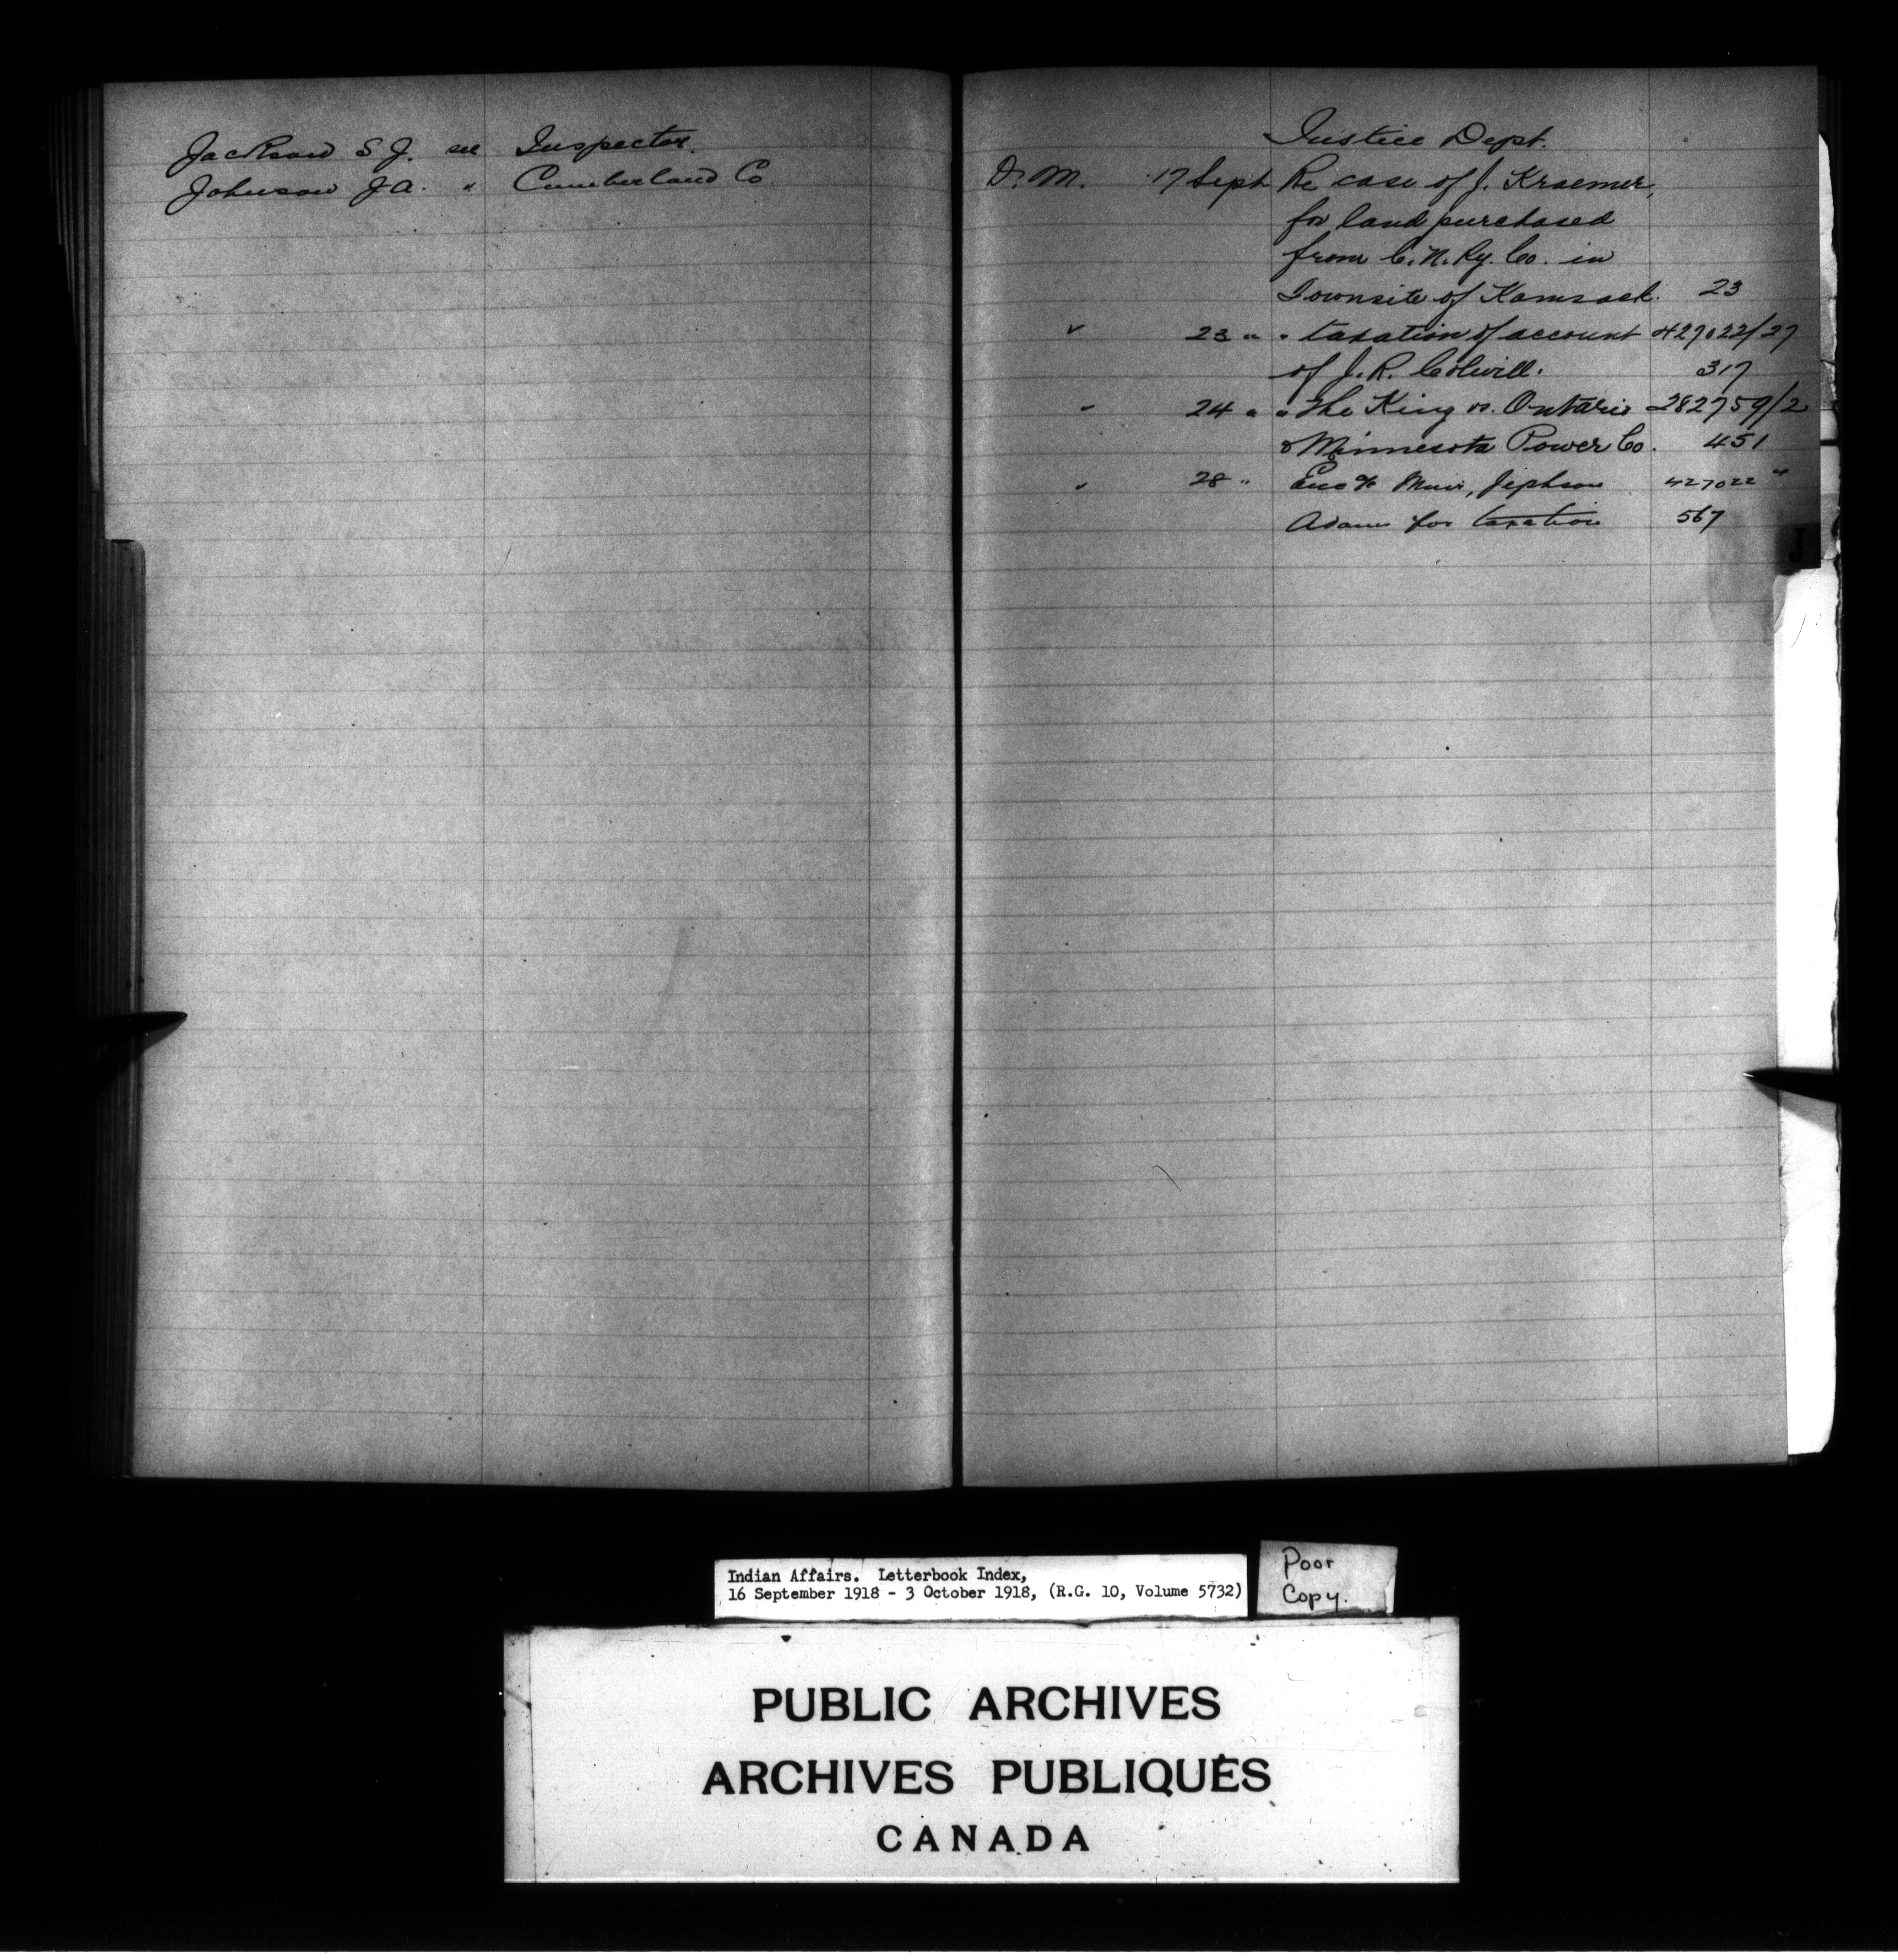 Jackson S J. see Inspector.
Johnson J A. " Cumberland Co
Justice Dept.
D. M. 17 Sept Re case of J. Kraemer,
for land purchased
from C. N. Ry. Co. in
Townsite of Kamsack. 23
✓ 23 " " taxation of account 427022/27
of J. R. Colwill. 317
✓ 24 " " The King vs. Ontario 282759/2
& Minnesota Power Co. 451
✓ 28 " Enc % Muir, Jephson 427022 "
Adams for taxation 567
J
Indian Affairs. Letterbook Index,
16 September 1918 - 3 October 1918, (R.G. 10, Volume 5732)
Poor
Copy.
PUBLIC ARCHIVES
ARCHIVES PUBLIQUES
CANADA